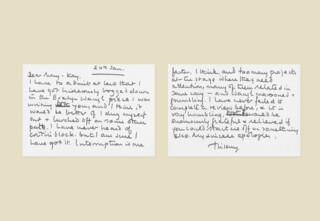 24th Jan.
Dear Mary-Kay,
I have to admit at last that I
have got hideously bogged down
in the Evelyn Waugh piece I was
writing for you, and I think it
would be better if I dug myself
out + turned off on some other
path. I have never heard of
writer's block but I am sure I
have got it. Interruption is one
factor, I think, and too many projects
at the stage where they need
attention, many of them related in
some way – and Waugh marooned +
mumbling. I have never failed to
complete a review before, & it is
very humbling, would be
enormously grateful + relieved if
you could start me off on something
else. My sincere apologies.
Hilary